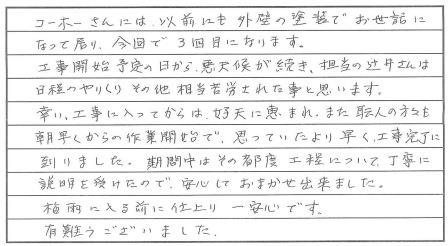 コーホーさんには、以前にも外壁の塗装でお世話に
なって居り、今回で3回目になります。
工事開始予定の日から、悪天候が続き、担当の辻井さんは
日程のやりくりその他相当苦労された事と思います。
幸い、工事に入ってからは、好天に恵まれ、また職人の方々も
朝早くからの作業開始で、思っていたより早く、工事完了に
到りました。期間中はその都度工程について、丁寧に
説明を受けたので、安心しておまかせ出来ました。
梅雨に入る前に仕上り一安心です。
有難うございました。